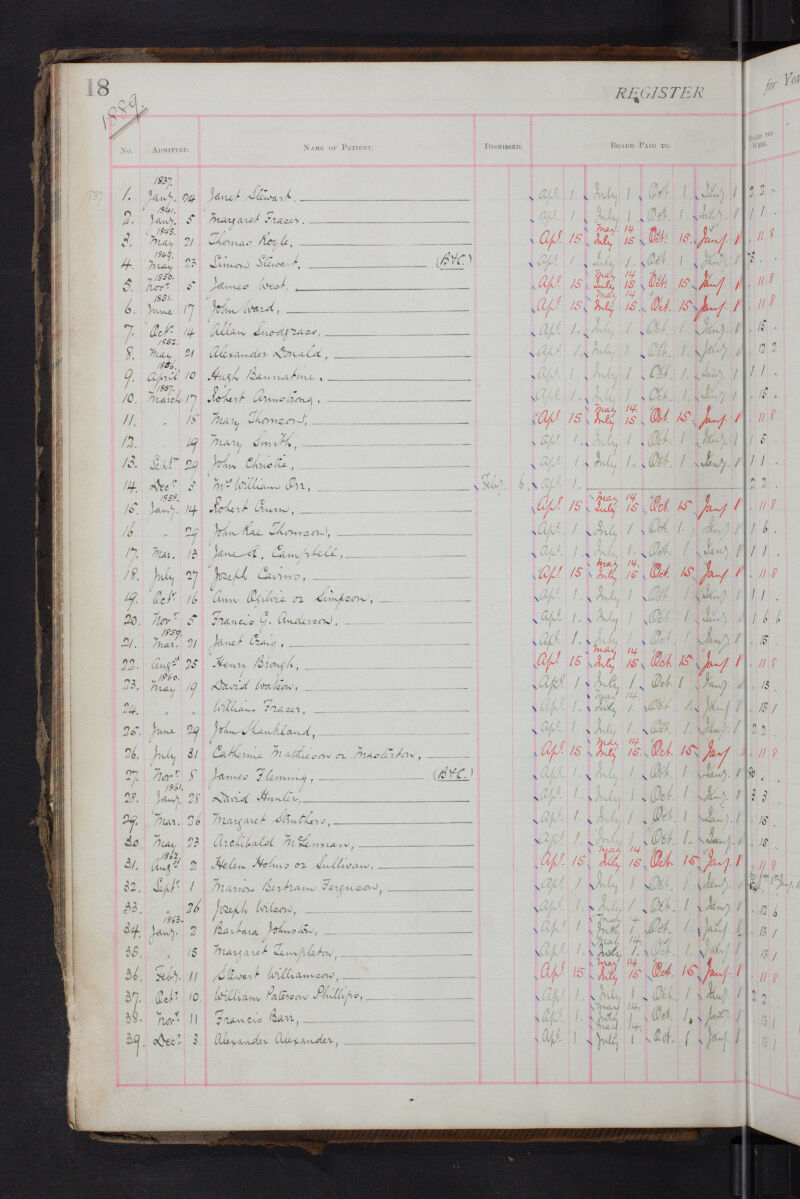 18
REGISTER
for
1889.
No. ADMITTED. NAME OF PATIENT. DISMISSED. BOARD PAID TO. BOARD PER WEEK.
1837.
1. Jany. 24 Janet Stewart. Apl. 1 July 1 Oct. 1 Jany. 1 22 -
1841.
2. Jany. 5 Margaret Fraser. Apl. 1 July 1 Oct. 1 Jany. 1 11 -
1845. May 14
3. May 21 Thomas Royle, Apl. 15 July 15 Oct. 15 Jany. 1 . 11 8
1849.
4. May 23 Simon Stewart, (B&C.) Apl. 1 July 1 Oct. 1 Jany. 1
1850. May 14
5. Novr. 5 James West. Apl. 15 July 15 Oct. 15 Jany. 1 . 11 8
1851. May 14
6. June 17 John Ward, Apl. 15 July 15 Oct. 15 Jany. 1 . 11 8
7. Octr. 14 Allan Snodgrass, Apl. 1 July 1 Oct. 1 Jany. 1 . 15 .
1852.
8. May 21 Alexander Donald, Apl. 1 July 1 Oct. 1 Jany. 1
1856.
9. April 10 Hugh Bannatine, Apl. 1 July 1 Oct. 1 Jany. 1 11 .
1857.
10. March 17 Robert Armstrong, Apl. 1 July 1 Oct. 1 Jany. 1 . 15 .
May 14
11. " 18 Mary Thomson, Apl. 15 July 15 Oct. 15 Jany. 1 . 11 8
12. " 19 Mary Smith, Apl. 1 July 1 Oct. 1 Jany. 1 1 5 .
13. Septr. 29 John Christie, Apl. 1 July 1 Oct. 1 Jany. 1 11 .
14. Decr. 3 Mrs. William Orr, Feby. 6 Apl. 1. 22 .
1858. May 14
15. Jany. 14 Robert Crum, Apl. 15 July 15 Oct. 15 Jany. 1 . 11 8
16. " 29 John Rae Thomson, Apl. 1 July 1 Oct. 1 Jany. 1 1 6 .
17. Mar. 13 Jane A. Campbell, Apl. 1 July 1 Oct. 1 Jany. 1 11 .
May 14
18. July 27 Joseph Cairns, Apl. 15 July 15 Oct. 15 Jany. 1 . 11 8
19. Octr. 16 Ann Ogilvie or Simpson, Apl. 1 July 1 Oct. 1 Jany. 1 11 .
20. Novr. 5 Francis G. Anderson, Apl. 1 July 1 Oct. 1 Jany. 1 1 6 6
1859.
21. Mar. 21 Janet Craig, Apl. 1 July 1 Oct. 1 Jany. 1 . 15 .
May 14
22. Augst. 25 Henry Brough, Apl. 15 July 15 Oct. 15 Jany. 1 . 11 8
1860.
23. May 19 David Watson, Apl. 1 July 1 Oct. 1 Jany. 1 . 15 .
May 14
24. " " William Fraser, Apl. 1 July 1 Oct. 1 Jany. 1 . 13 1
25. June 29 John Shankland, Apl. 1 July 1 Oct. 1 Jany. 1 22 .
May 14
26. July 31 Catherine Mathieson or Masterton, Apl. 15 July 15 Oct. 15 Jany. 1 . 11 8
27. Novr. 8 James Fleming, (B&C.) Apl. 1 July 1 Oct. 1 Jany. 1 80 . .
1861.
28. Jany. 28 David Hunter, Apl. 1 July 1 Oct. 1 Jany. 1 33 .
29. Mar. 26 Margaret Struthers, Apl. 1 July 1 Oct. 1 Jany. 1 . 15 .
30. May 23 Archibald McLennan, Apl. 1 July 1 Oct. 1 Jany. 1 . 15 .
1862. May 14
31. Augst. 2 Helen Holms or Sullivan, Apl. 15 July 15 Oct. 15 Jany. 1 . 11 8
32. Septr. 1 Marion Bertram Ferguson, Apl. 1 July 1 Oct. 1 Jany. 1
33. " 26 Joseph Wilson, Apl. 1 July 1 Oct. 1 Jany. 1 . 12 6
1863. May 14
34. Jany. 2 Barbara Johnston, Apl. 1 July 1 Oct. 1 Jany. 1 . 13 1
May 14
35. " 15 Margaret Templeton, Apl. 1 July 1 Oct. 1 Jany. 1 . 13 1
May 14
36. Feby. 11 Stewart Williamson, Apl. 15 July 15 Oct. 15 Jany. 1 . 11 8
37. Octr. 10 William Paterson Phillips, Apl. 1 July 1 Oct. 1 Jany. 1 22
May 14
38. Novr. 11 Francis Barr, Apl. 1 July 1 Oct. 1 Jany. 1 . 13 1
May 14
39. Decr. 3 Alexander Alexander, Apl. 1 July 1 Oct. 1 Jany. 1 . 13 1